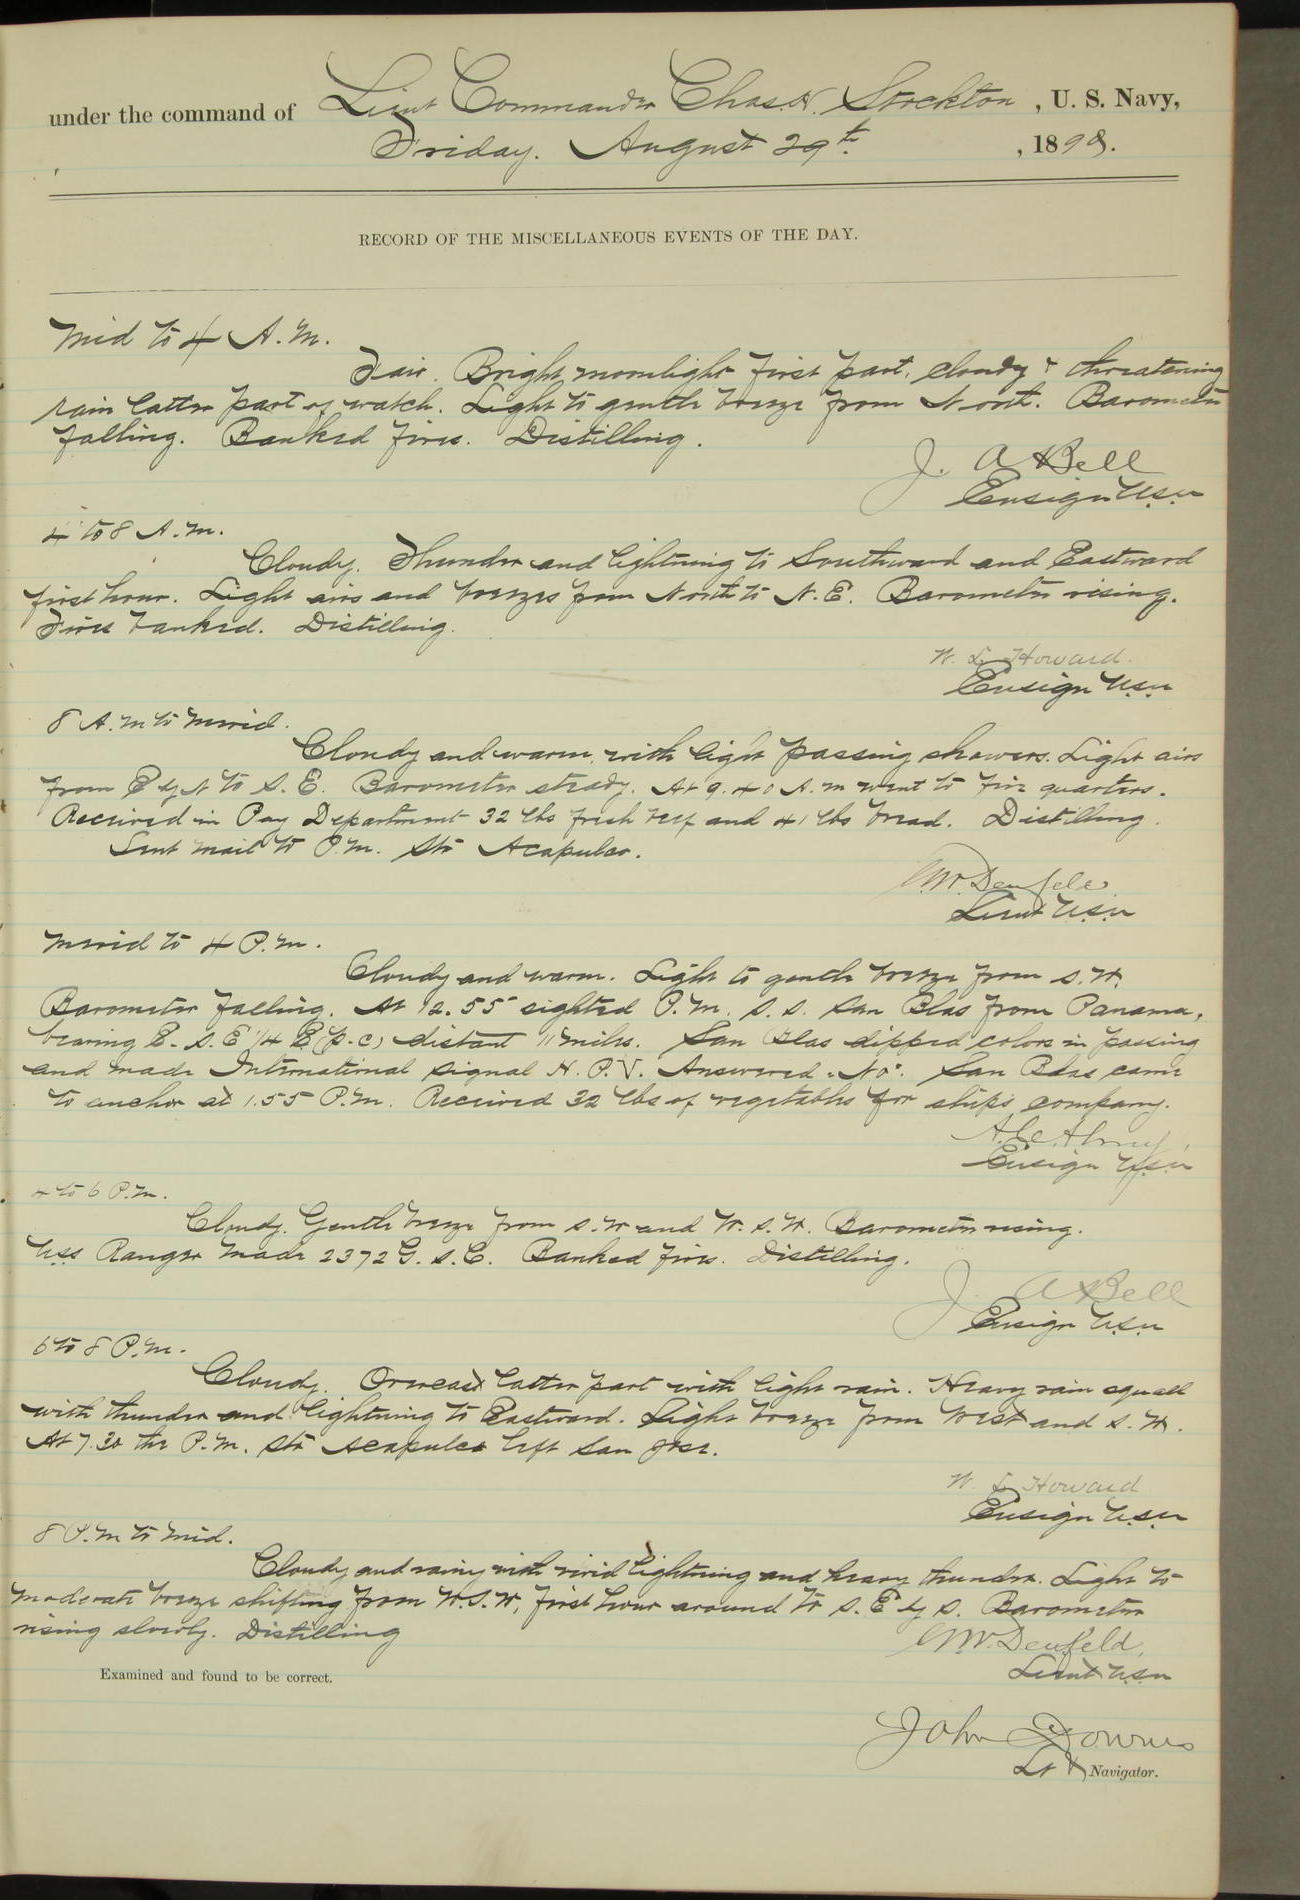 under the command of Lieut Commander Chas. H. Stockton, U. S. Navy,
Friday. August 29th, 1890.
RECORD OF THE MISCELLANEOUS EVENTS OF THE DAY.
Mid to 4 A.M.
Fair. Bright moonlight first part, cloudy & threatening
rain latter part of watch. Light to gentle breeze from North. Barometer
falling. Banked fires. Distilling.
J. A Bell
Ensign U.S.N
4 to 8 A.M.
Cloudy. Thunder and lightning to Southward and Eastward
first hour. Light airs and breezes from North to N.E. Barometer rising.
Fires banked. Distilling.
W. L. Howard.
Ensign U.S.N
8 A.M to Merid.
Cloudy and warm, with light passing showers. Light airs
from E by N to S.E. Barometer steady. At 9.40 A.M went to fire quarters.
Received in Pay Department 32 lbs fresh beef and 41 lbs bread. Distilling.
Sent mail to P.M. Str Acapulco.
Denfeld
Lieut U.S.N
Merid to 4 P.M.
Cloudy and warm. Light to gentle breeze from S.W.
Barometer falling. At 12.55 sighted P.M. S.S. San Blas from Panama,
bearing E.S.E 1/4 E (p.c) distant 11 miles. San Blas dipped colors in passing
and made International signal H.P.V. Answered "No". San Blas came
to anchor at 1.55 P.M. Received 32 lbs of vegetables for ship's company.
Ensign U.S.N
4 to 6 P.M.
Cloudy. Gentle breeze from S.W and W.S.W. Barometer rising.
USS Ranger made 2372 G.S.C. Banked fires. Distilling.
J. A Bell
Ensign U.S.N
6 to 8 P.M.
Cloudy. Overcast latter part with light rain. Heavy rain squall
with thunder and lightning to Eastward. Light breeze from West and S.W.
At 7.30 the P.M. Str Acapulco left San Jose.
W. L. Howard
Ensign U.S.N
8 P.M to Mid.
Cloudy and rainy with vivid lightning and heavy thunder. Light to
moderate breeze shifting from W.S.W, first hour around to S.E by S. Barometer
rising slowly. Distilling
Denfeld.
Lieut U.S.N
Examined and found to be correct.
John Downes
Lt & Navigator.